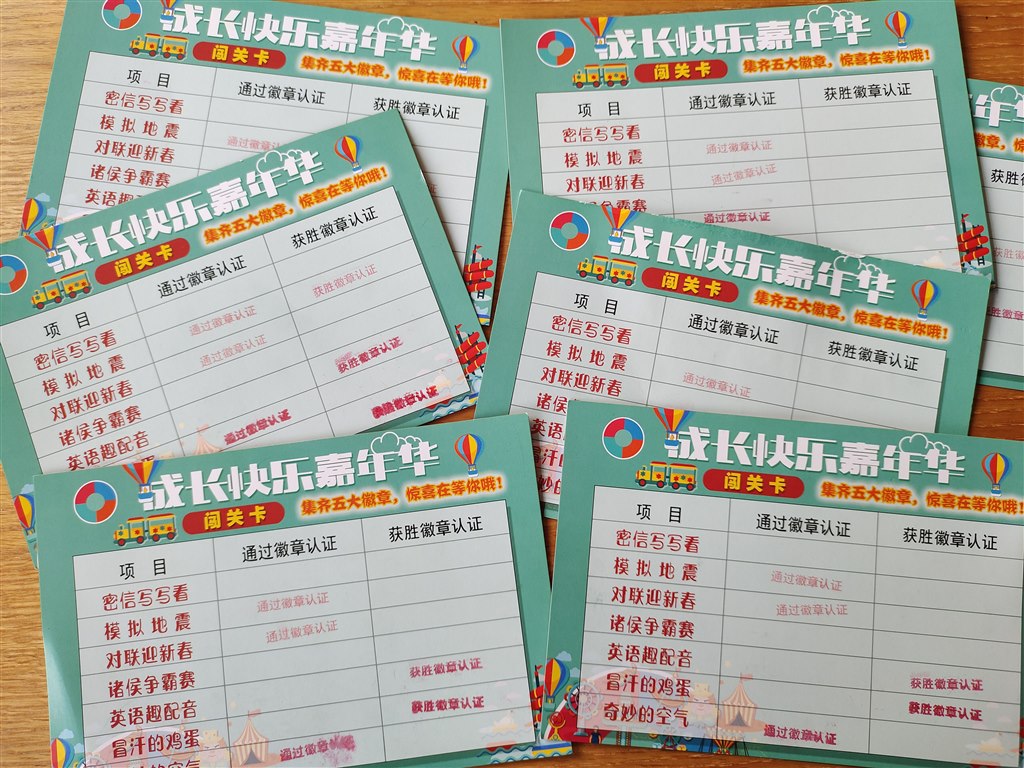 成长快乐嘉年华
闯关卡 集齐五大徽章，惊喜在等你哦！
项目 通过徽章认证 获胜徽章认证
密信写写看
模拟地震
对联迎新春 通过徽章认证
诸侯争霸赛
英语趣配音
成长快乐嘉年华
闯关卡 集齐五大徽章，惊喜在等你哦！
项目 通过徽章认证 获胜徽章认证
密信写写看
模拟地震 通过徽章认证
对联迎新春 通过徽章认证
通过徽章认证
年华
获胜
获胜徽章
获胜徽章
成长快乐嘉年华
闯关卡 集齐五大徽章，惊喜在等你哦！
项目 通过徽章认证 获胜徽章认证
密信写写看 通过徽章认证 获胜徽章认证
模拟地震 通过徽章认证
对联迎新春
诸侯争霸赛 获胜徽章认证
英语趣配音 通过徽章认证 获胜徽章认证
成长快乐嘉年华
闯关卡 集齐五大徽章，惊喜在等你哦！
项目 通过徽章认证 获胜徽章认证
密信写写看
模拟地震 通过徽章认证
对联迎新春
成长快乐嘉年华
闯关卡 集齐五大徽章，惊喜在等你哦！
项目 通过徽章认证 获胜徽章认证
密信写写看 通过徽章认证
模拟地震 通过徽章认证
对联迎新春
诸侯争霸赛 获胜徽章认证
英语趣配音 获胜徽章认证
冒汗的鸡蛋 通过徽章认证
的空气
成长快乐嘉年华
闯关卡 集齐五大徽章，惊喜在等你哦！
项目 通过徽章认证 获胜徽章认证
密信写写看
模拟地震 通过徽章认证
对联迎新春 通过徽章认证
诸侯争霸赛
英语趣配音
冒汗的鸡蛋 获胜徽章认证
奇妙的空气 通过徽章认证 获胜徽章认证